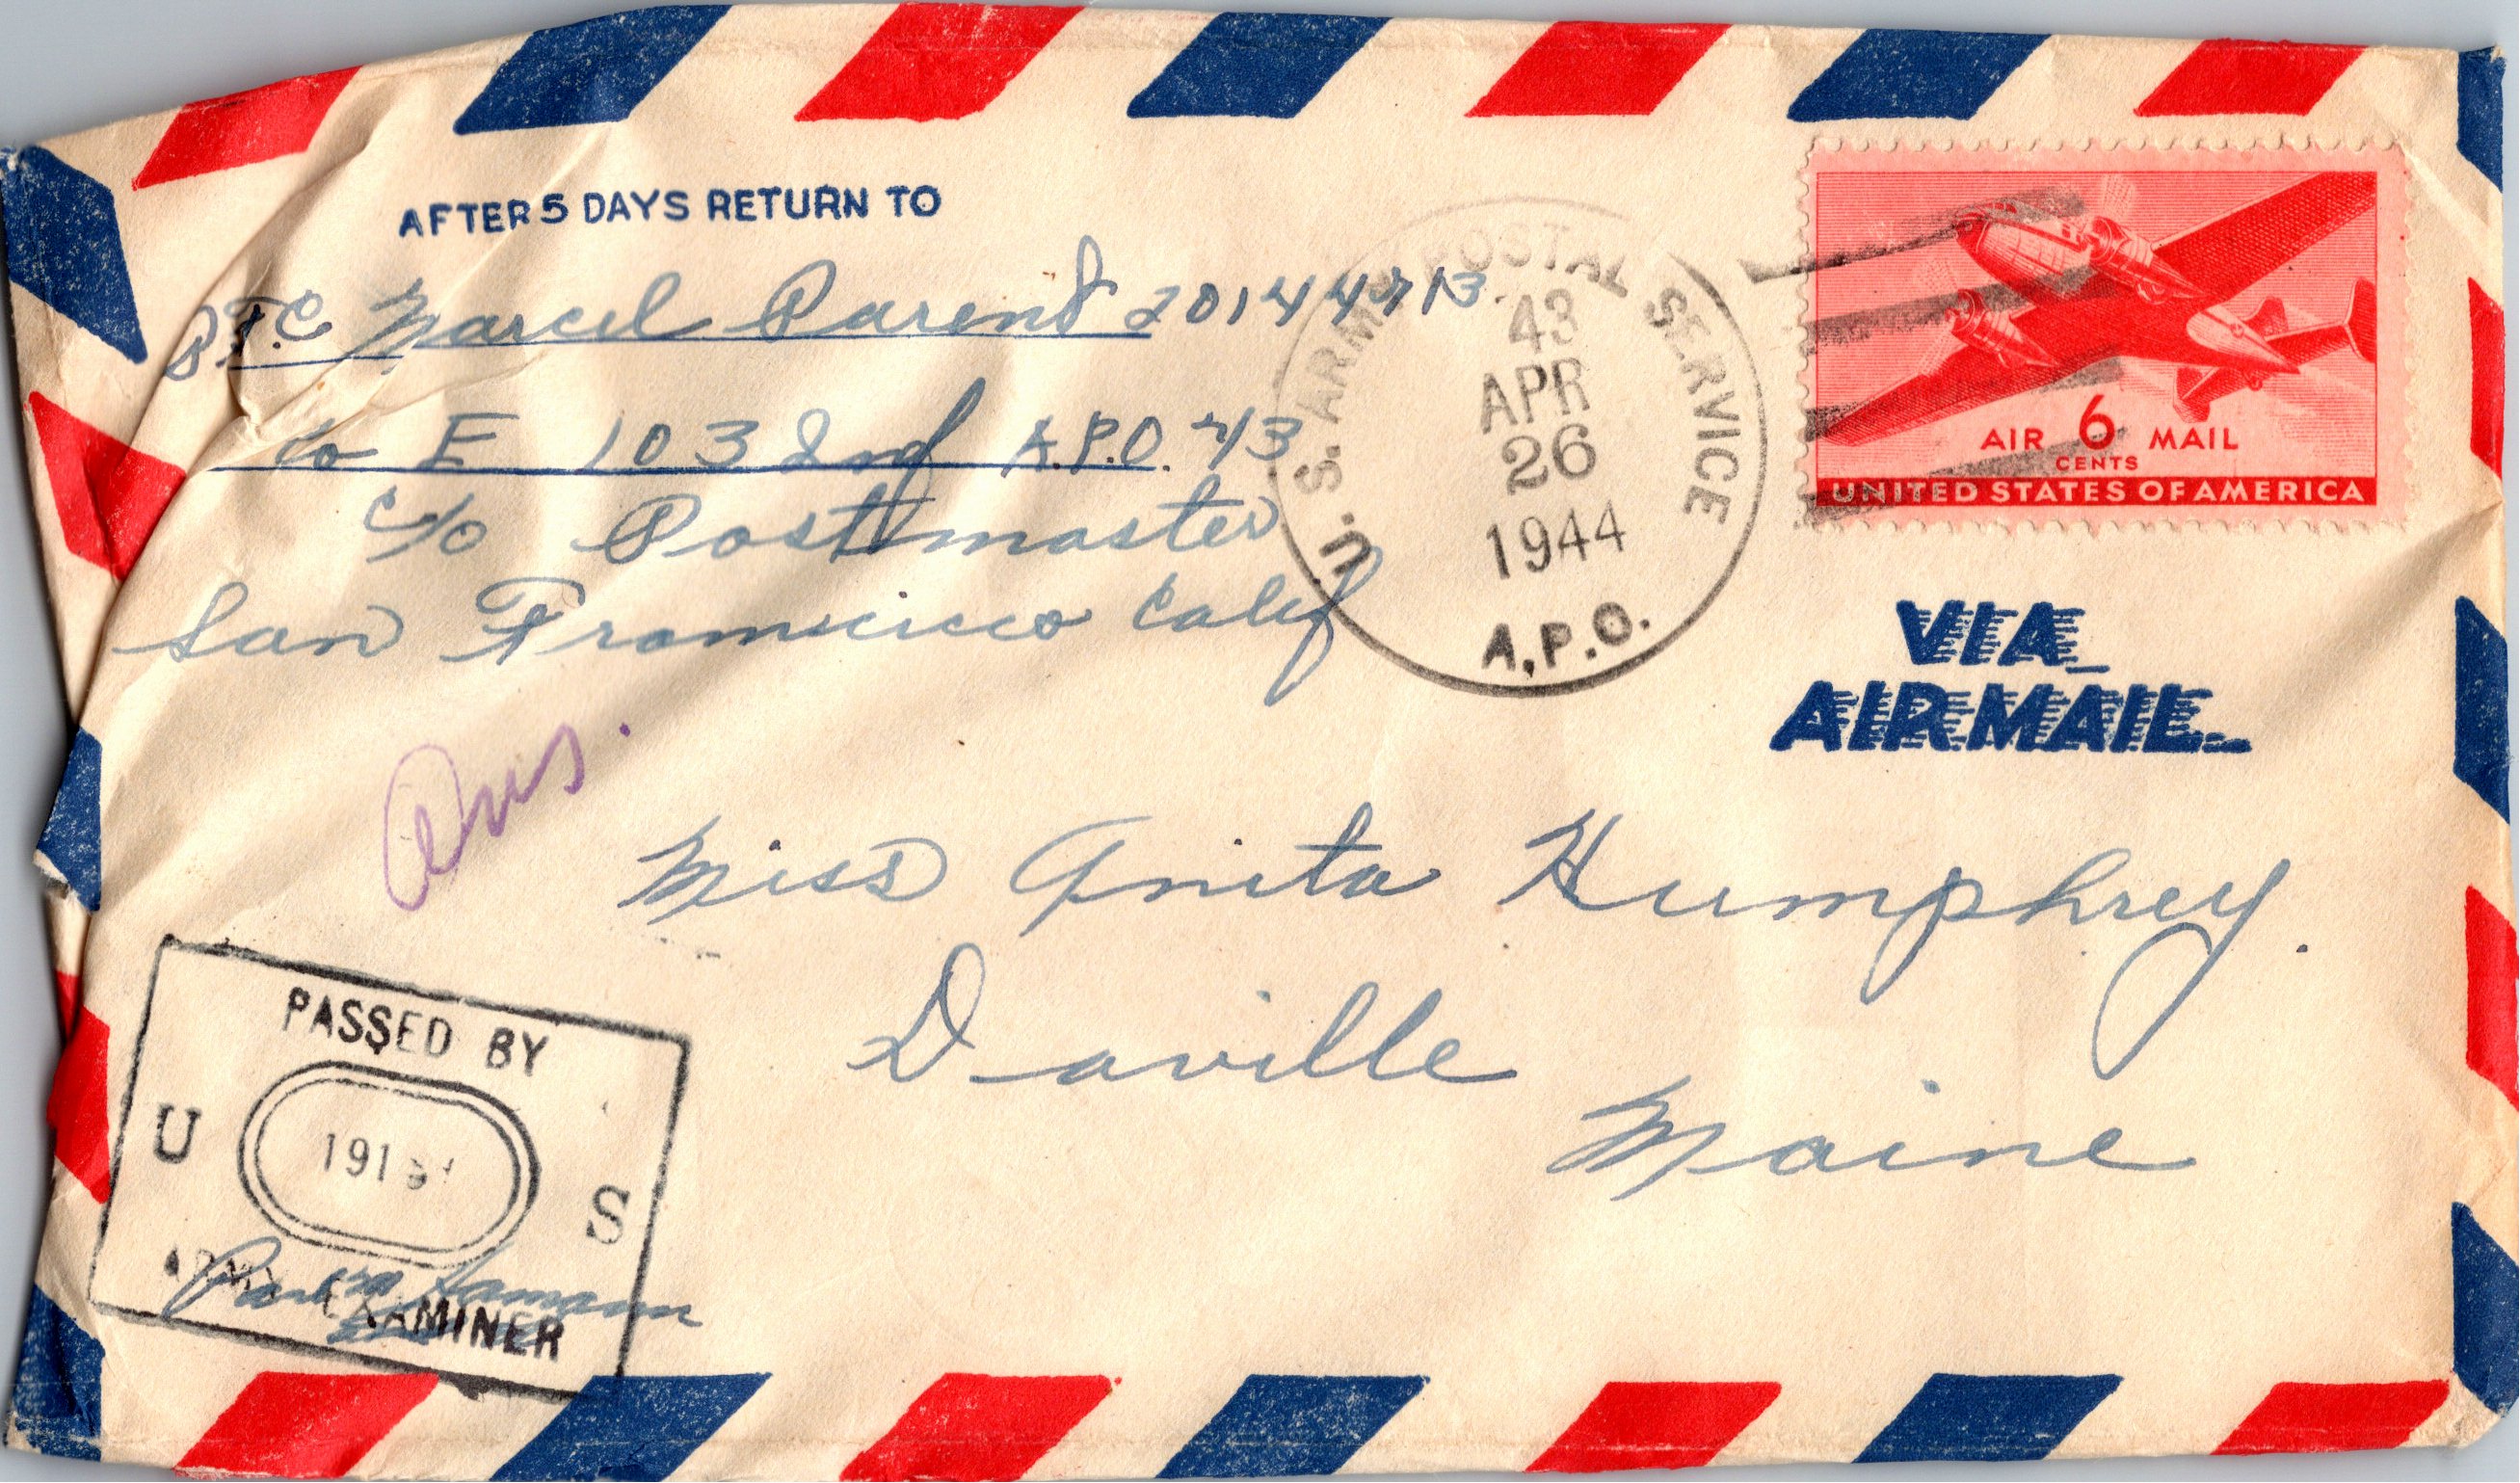 AFTER 5 DAYS RETURN TO
P.F.C Marcel Parent 20144713
Co E 103 Inf A.P.O. 43
c/o Postmaster
San Francisico Calif
U. S. ARMY POSTAL SERVICE
43
APR
26
1944
A.P.O.
AIR 6 MAIL
CENTS
UNITED STATES OF AMERICA
VIA
AIRMAIL
Ans.
Miss Anita Humphrey.
Daville
Maine
PASSED BY
U S
ARMY EXAMINER